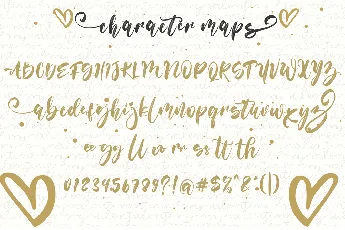 character maps
ABCDEFGHIJKLMNOPQRSTUVWXYZ
abcdefghijklmnopqrstuvwxyz
th
0123456789?!@#$%^&:()